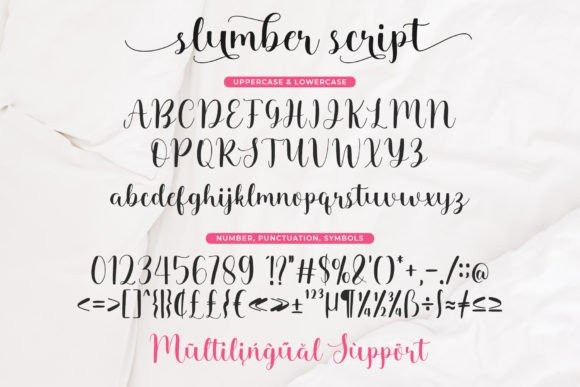 slumber script
UPPERCASE & LOWERCASE
ABCDEFGHIJKLMN
OPQRSTUVWXYZ
abcdefghijklmnopqrstuvwxyz
NUMBER, PUNCTUATION, SYMBOLS
0123456789 !?"#$%&'()*+,-./:;@
<=>[]^{}₿₵££{€«»±¹²³µ¶¼½¾ß÷∫≈≠≤≥
Mūltilįńĝűãl Sùppört